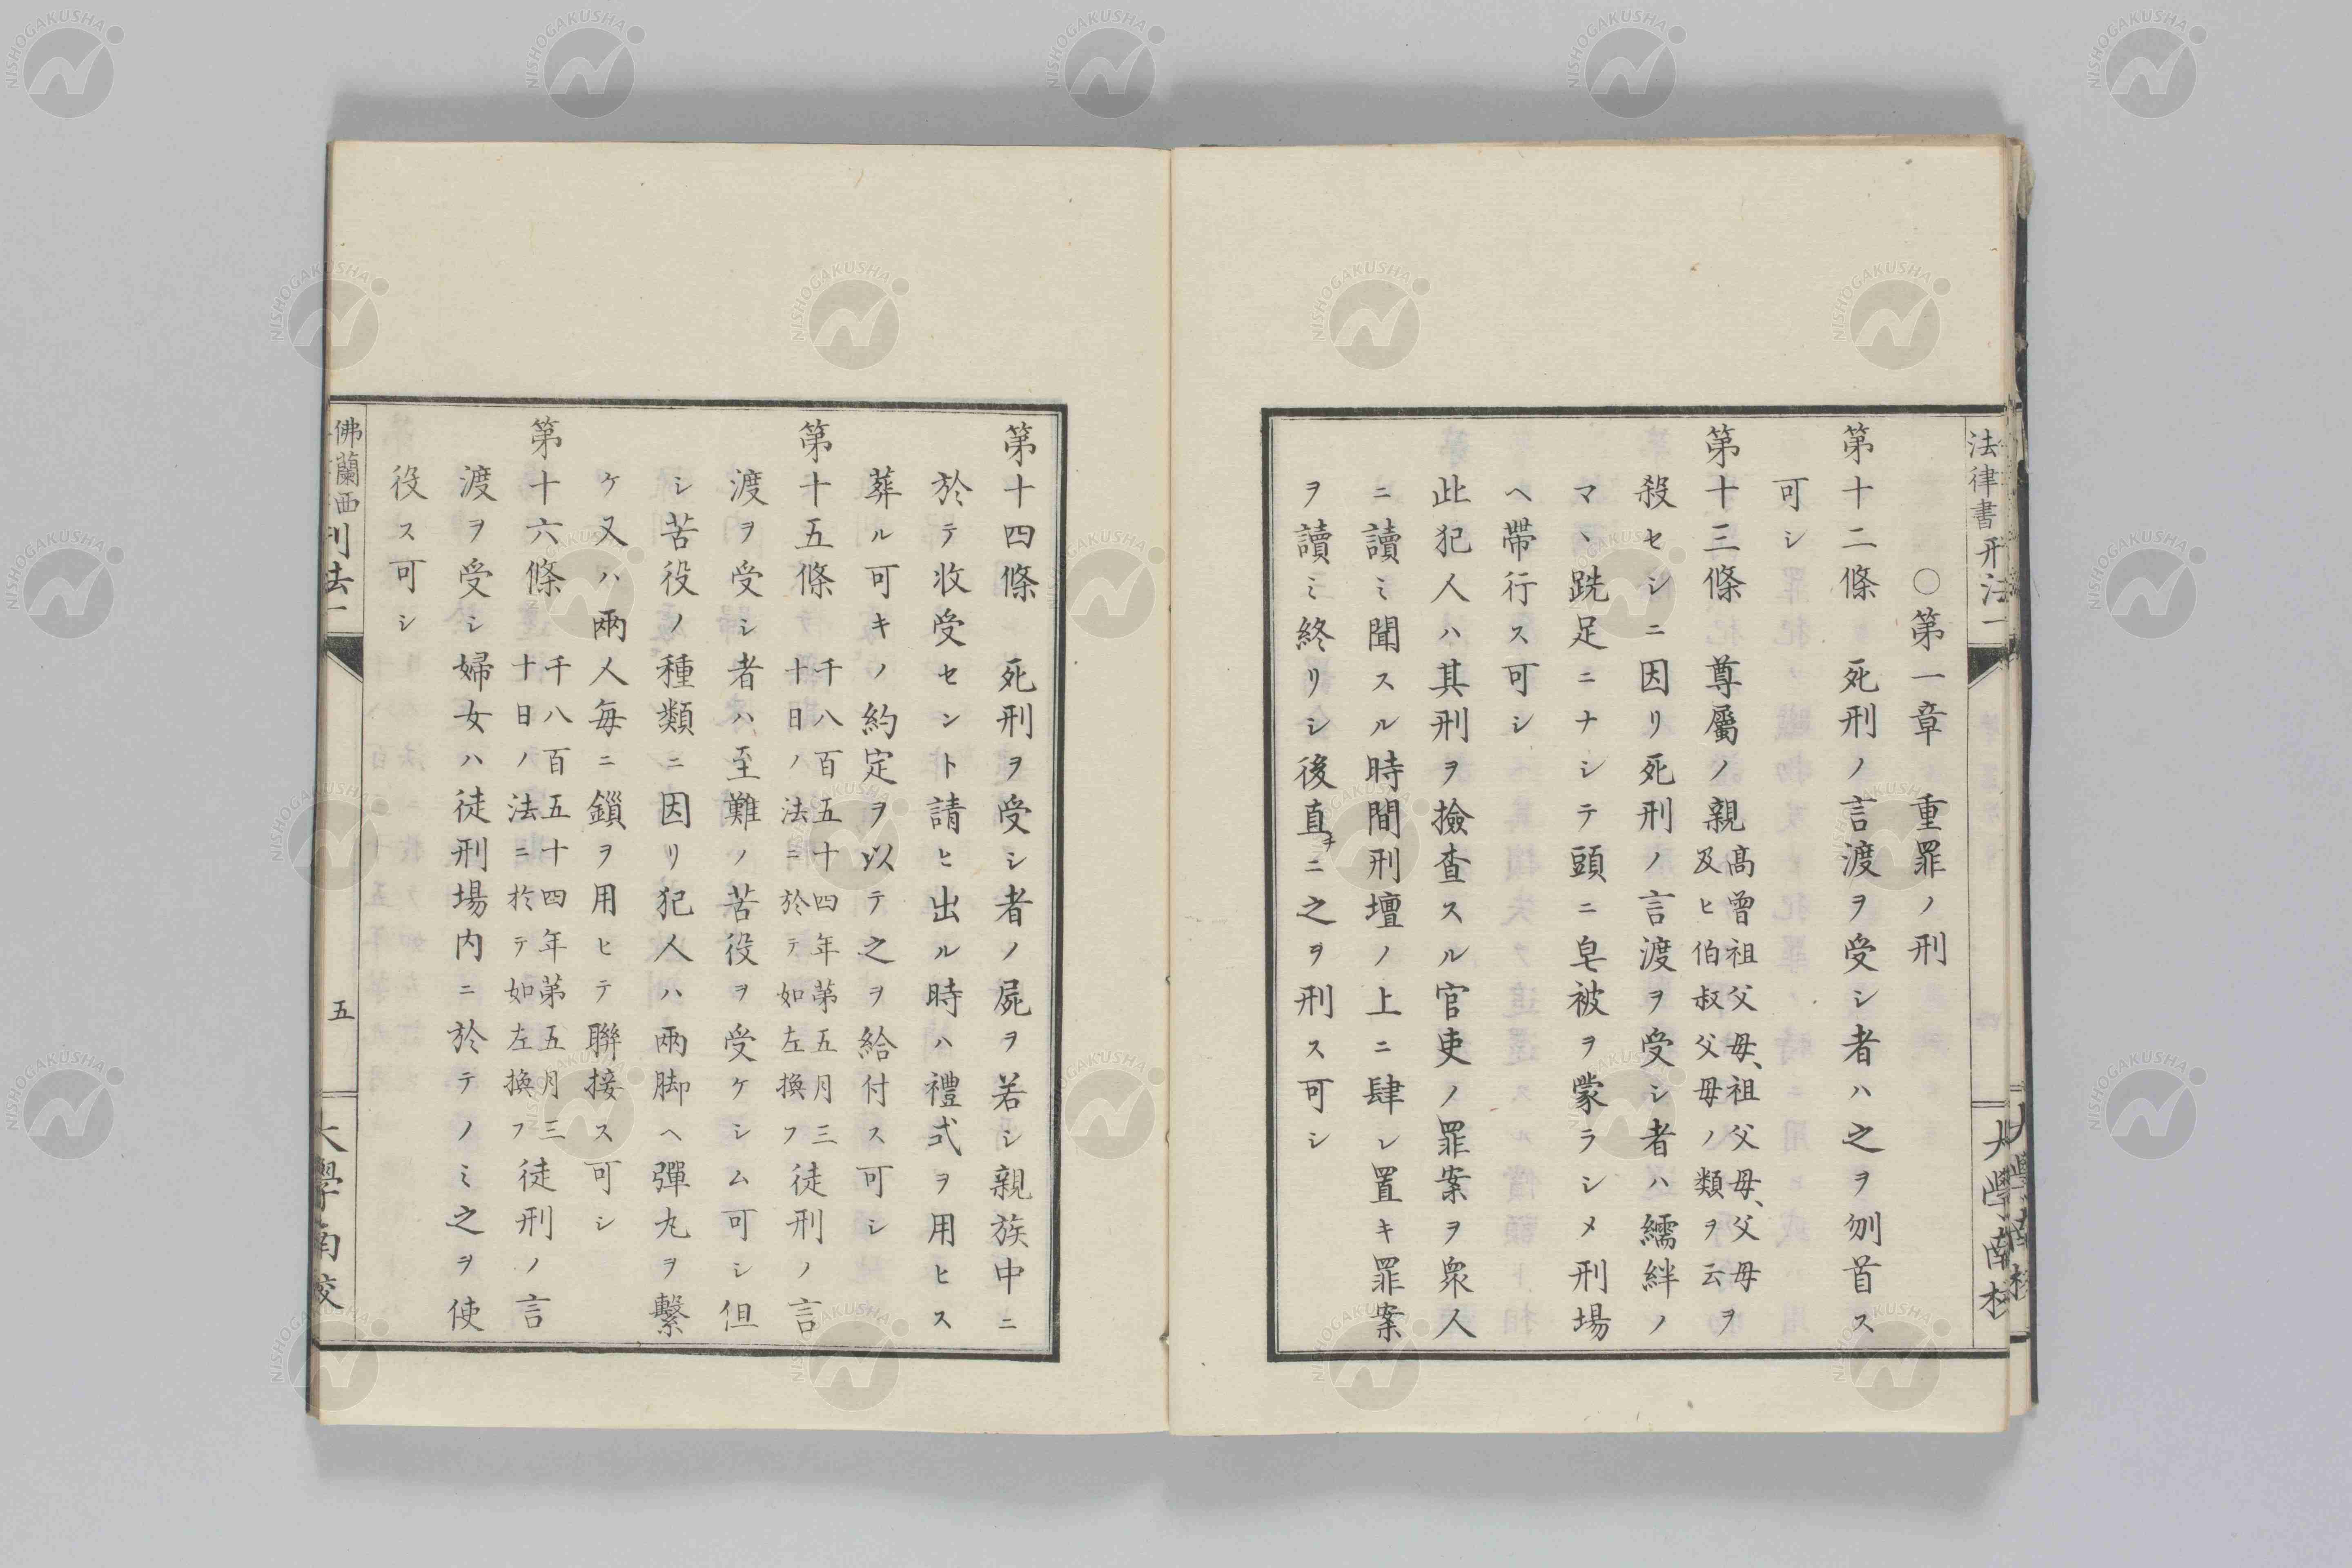 法律書刑法一
○第一章 重罪ノ刑
第十二條 死刑ノ言渡ヲ受シ者ハ之ヲ刎首ス
可シ
第十三條 尊屬ノ親高曾祖父母、祖父母、父母及ヒ伯叔父父母ノ類ヲ云ヲ
殺セシニ因リ死刑ノ言渡ヲ受シ者ハ繻絆ノ
マヽ跣足ニナシテ頭ニ皂被ヲ蒙ラシメ刑場
ヘ帶行ス可シ
此犯人ハ其刑ヲ撿査スル官吏ノ罪案ヲ衆人
ニ讀ミ聞スル時間刑壇ノ上ニ肆レ置キ罪案
ヲ讀ミ終リシ後直チニ之ヲ刑ス可シ
大學南校
第十四條 死刑ヲ受シ者ノ屍ヲ若シ親族中ニ
於テ收受セント請ヒ出ル時ハ禮式ヲ用ヒス
葬ル可キノ約定ヲ以テ之ヲ給付ス可シ
第十五條 千八百五十四年第五月三十日ノ法ニ於テ如左換フ 徒刑ノ言
渡ヲ受シ者ハ至難ノ苦役ヲ受ケシム可シ但
シ苦役ノ種類ニ因リ犯人ハ兩脚ヘ彈丸ヲ繫
ケ又ハ兩人毎ニ鎻ヲ用ヒテ聯接ス可シ
第十六條 千八百五十四年第五月三十日ノ法ニ於テ如左換フ 徒刑ノ言
渡ヲ受シ婦女ハ徒刑場内ニ於テノミ之ヲ使
役ス可シ
佛蘭西刑法一
五
大學南校
NISHOGAKUSHA